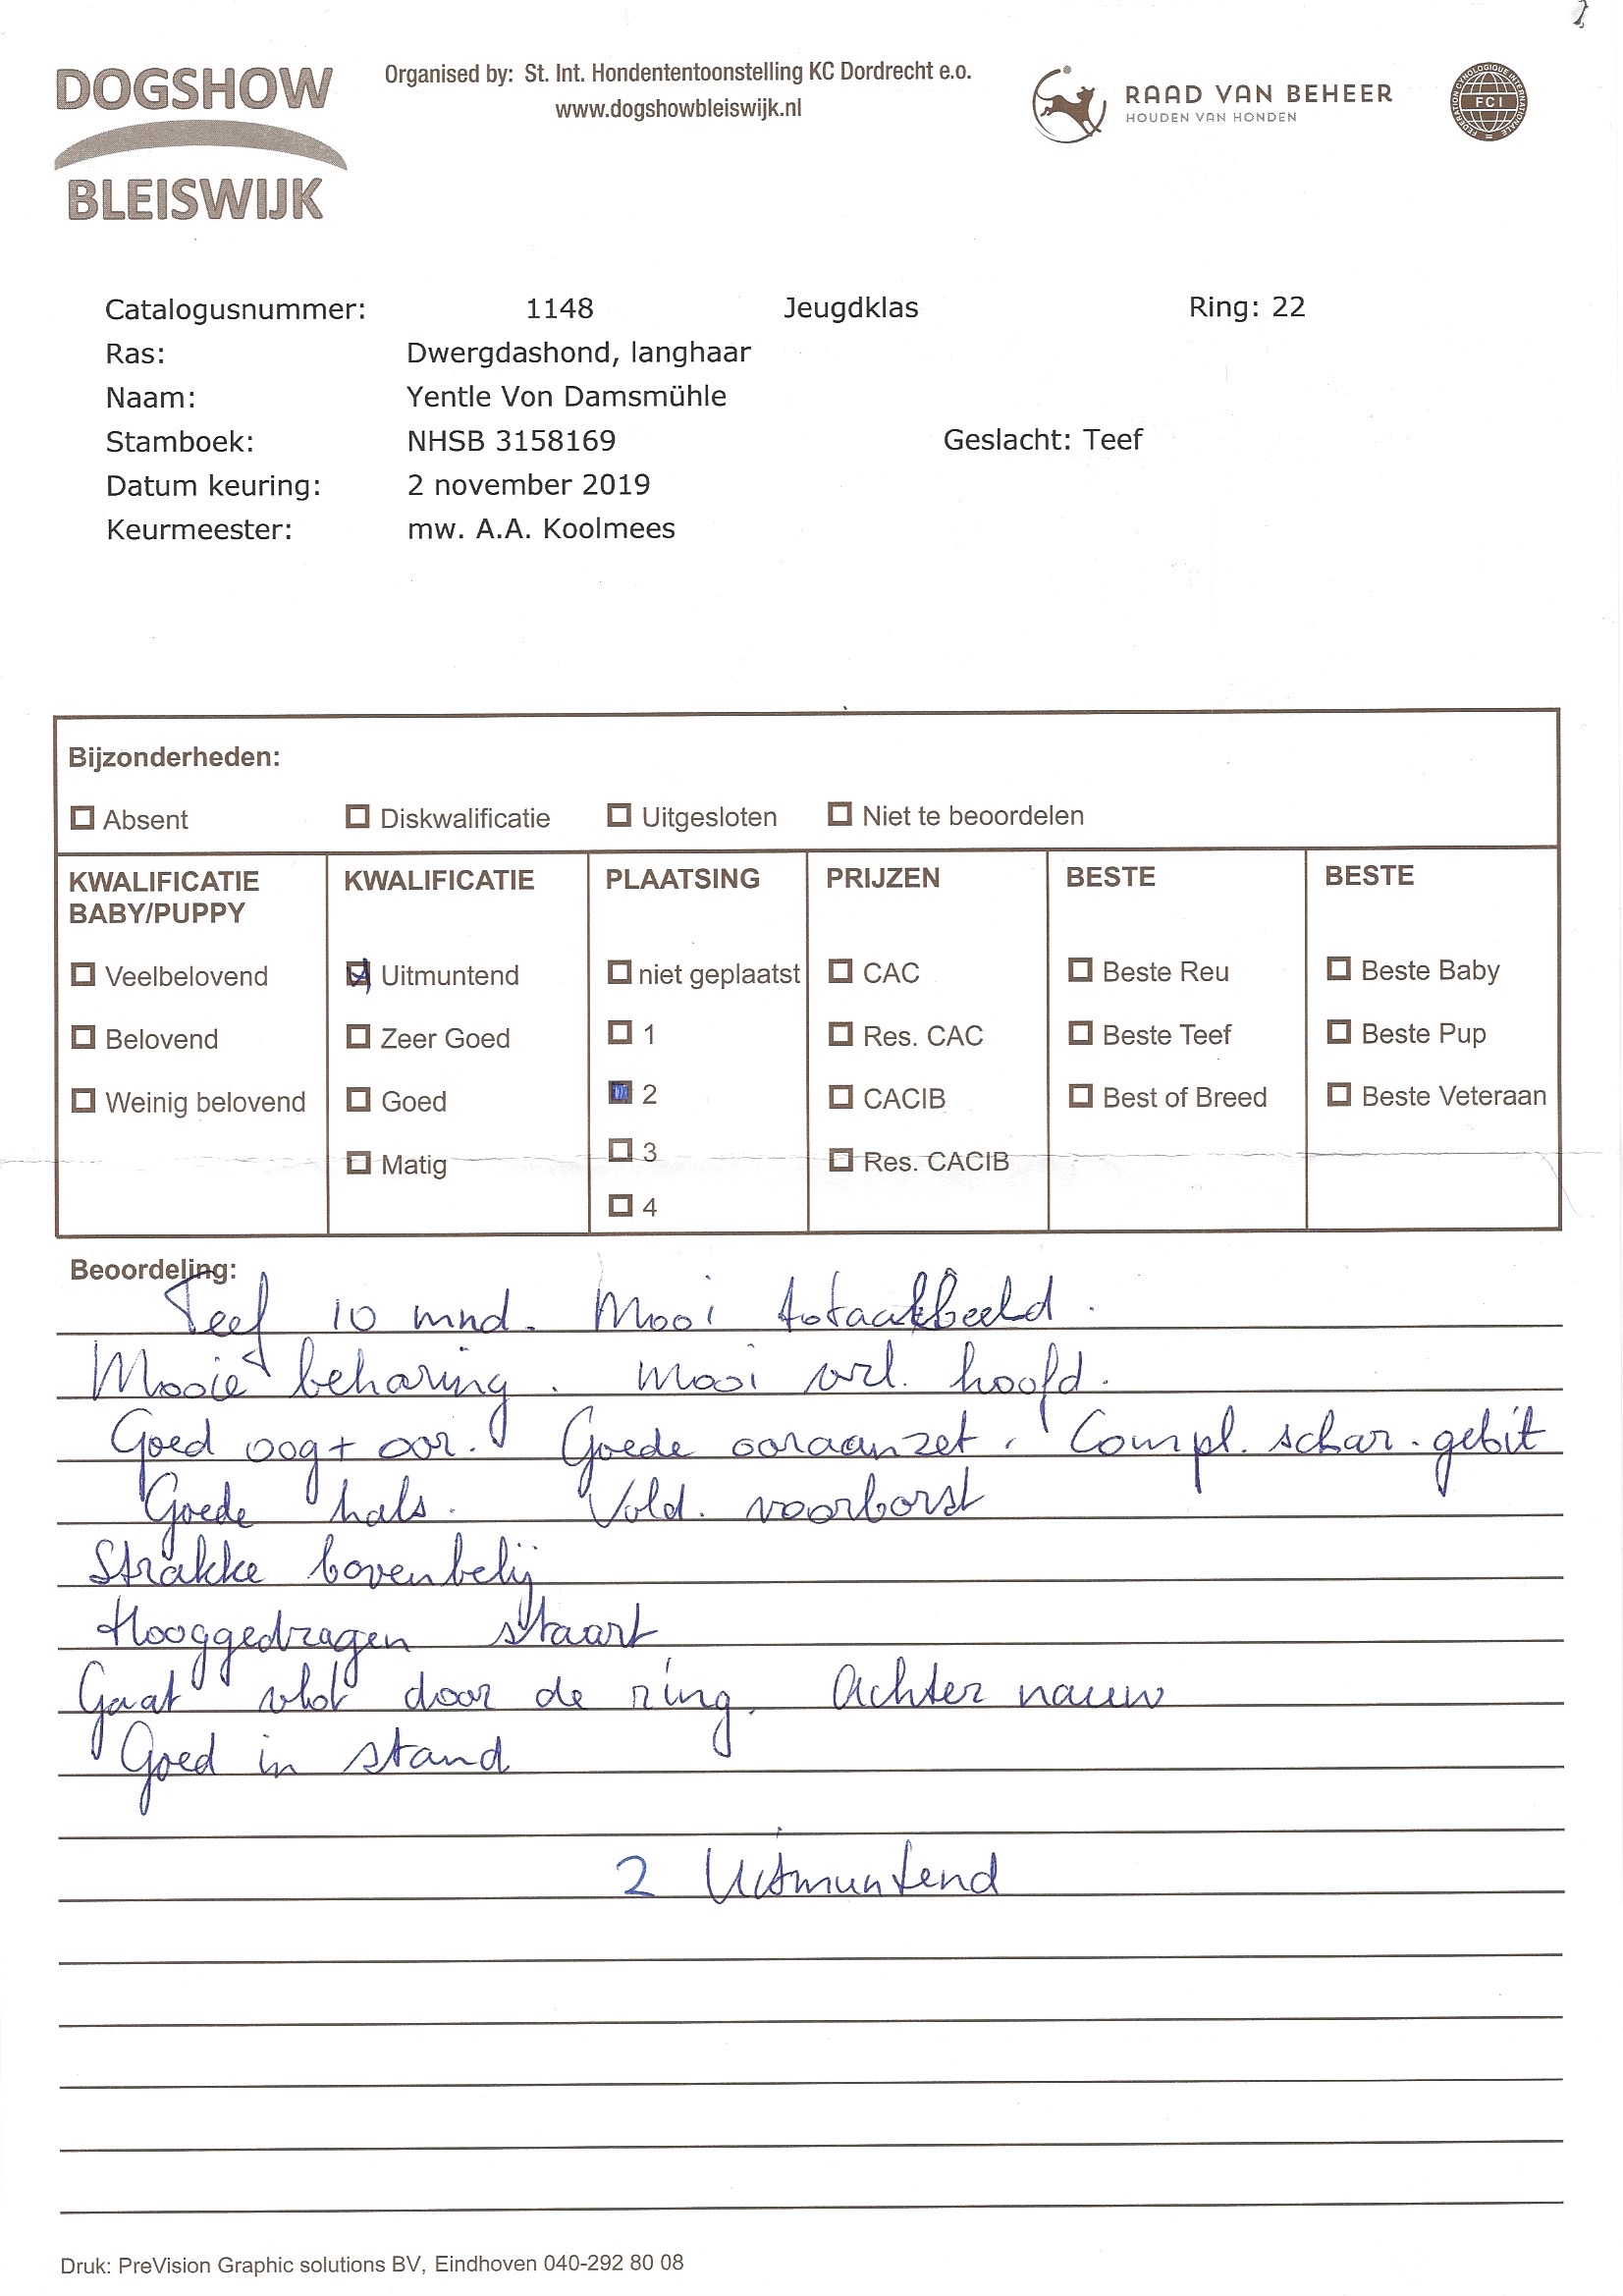 DOGSHOW
BLEISWIJK
Organised by: St. Int. Hondententoonstelling KC Dordrecht e.o.
www.dogshowbleiswijk.nl
RAAD VAN BEHEER
HOUDEN VAN HONDEN
FEDERATION CYNOLOGIQUE INTERNATIONALE
FCI
Catalogusnummer: 1148 Jeugdklas Ring: 22
Ras: Dwergdashond, langhaar
Naam: Yentle Von Damsmühle
Stamboek: NHSB 3158169 Geslacht: Teef
Datum keuring: 2 november 2019
Keurmeester: mw. A.A. Koolmees
Bijzonderheden:
Absent Diskwalificatie Uitgesloten Niet te beoordelen
KWALIFICATIE BABY/PUPPY
Veelbelovend
Belovend
Weinig belovend
KWALIFICATIE
Uitmuntend
Zeer Goed
Goed
Matig
PLAATSING
niet geplaatst
1
2
3
4
PRIJZEN
CAC
Res. CAC
CACIB
Res. CACIB
BESTE
Beste Reu
Beste Teef
Best of Breed
BESTE
Beste Baby
Beste Pup
Beste Veteraan
Beoordeling:
Teef 10 mnd. Mooi totaalbeeld.
Mooie beharing. Mooi vrl. hoofd.
Goed oog + oor. Goede ooraanzet. Compl. schar. gebit
Goede hals. Vold. voorborst
Strakke bovenbelij
Hooggedragen staart
Gaat vlot door de ring. Achter nauw
Goed in stand
2 Uitmuntend
Druk: PreVision Graphic solutions BV, Eindhoven 040-292 80 08